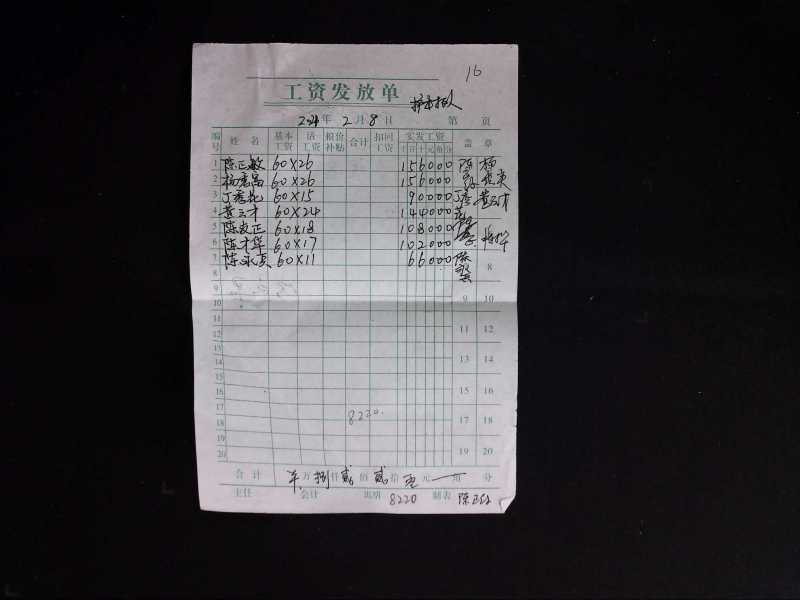 16
工资发放单
2024年 2月 8日 第 页
编号 姓名 基本工资 活工资 粮价补贴 合计 扣回工资 实发工资 盖章
千 百 十 元 角 分
1 陈正敏 60×26 156000
2 杨亮昌 60×26 156000
3 60×15 90000
4 黄云才 60×24 144000 黄云才
5 陈良正 60×18 108000
6 陈才华 60×17 102000
7 陈永贡 60×11 66000 8
8
9 9 10
10
11 11 12
12
13 13 14
14
15 15 16
16
17 8220. 17 18
18
19 19 20
20
合计 万捌仟贰佰贰拾 元 角 分
主任 会计 出纳 8220 制表 陈正